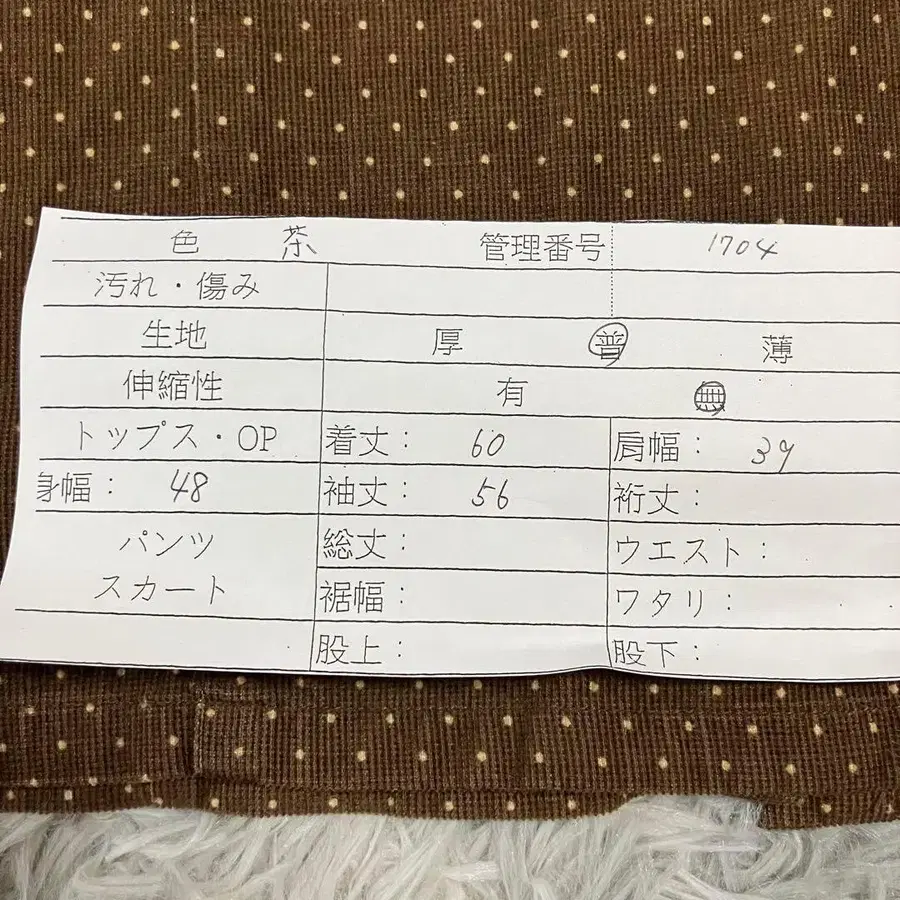 色 茶 管理番号 1704
汚れ・傷み
生地 厚 普 薄
伸縮性 有 無
トップス・OP 着丈: 60 肩幅: 39
身幅: 48 袖丈: 56 裄丈:
パンツ 総丈: ウエスト:
スカート 裾幅: ワタリ:
股上: 股下: